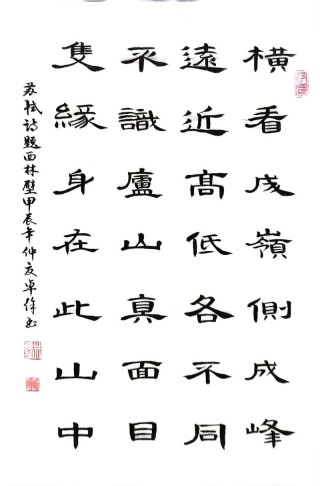 橫看成嶺側成峰
遠近髙低各不同
不識廬山真面目
隻緣身在此山中
蘇軾詩題西林壁甲辰年仲夏卓徐书